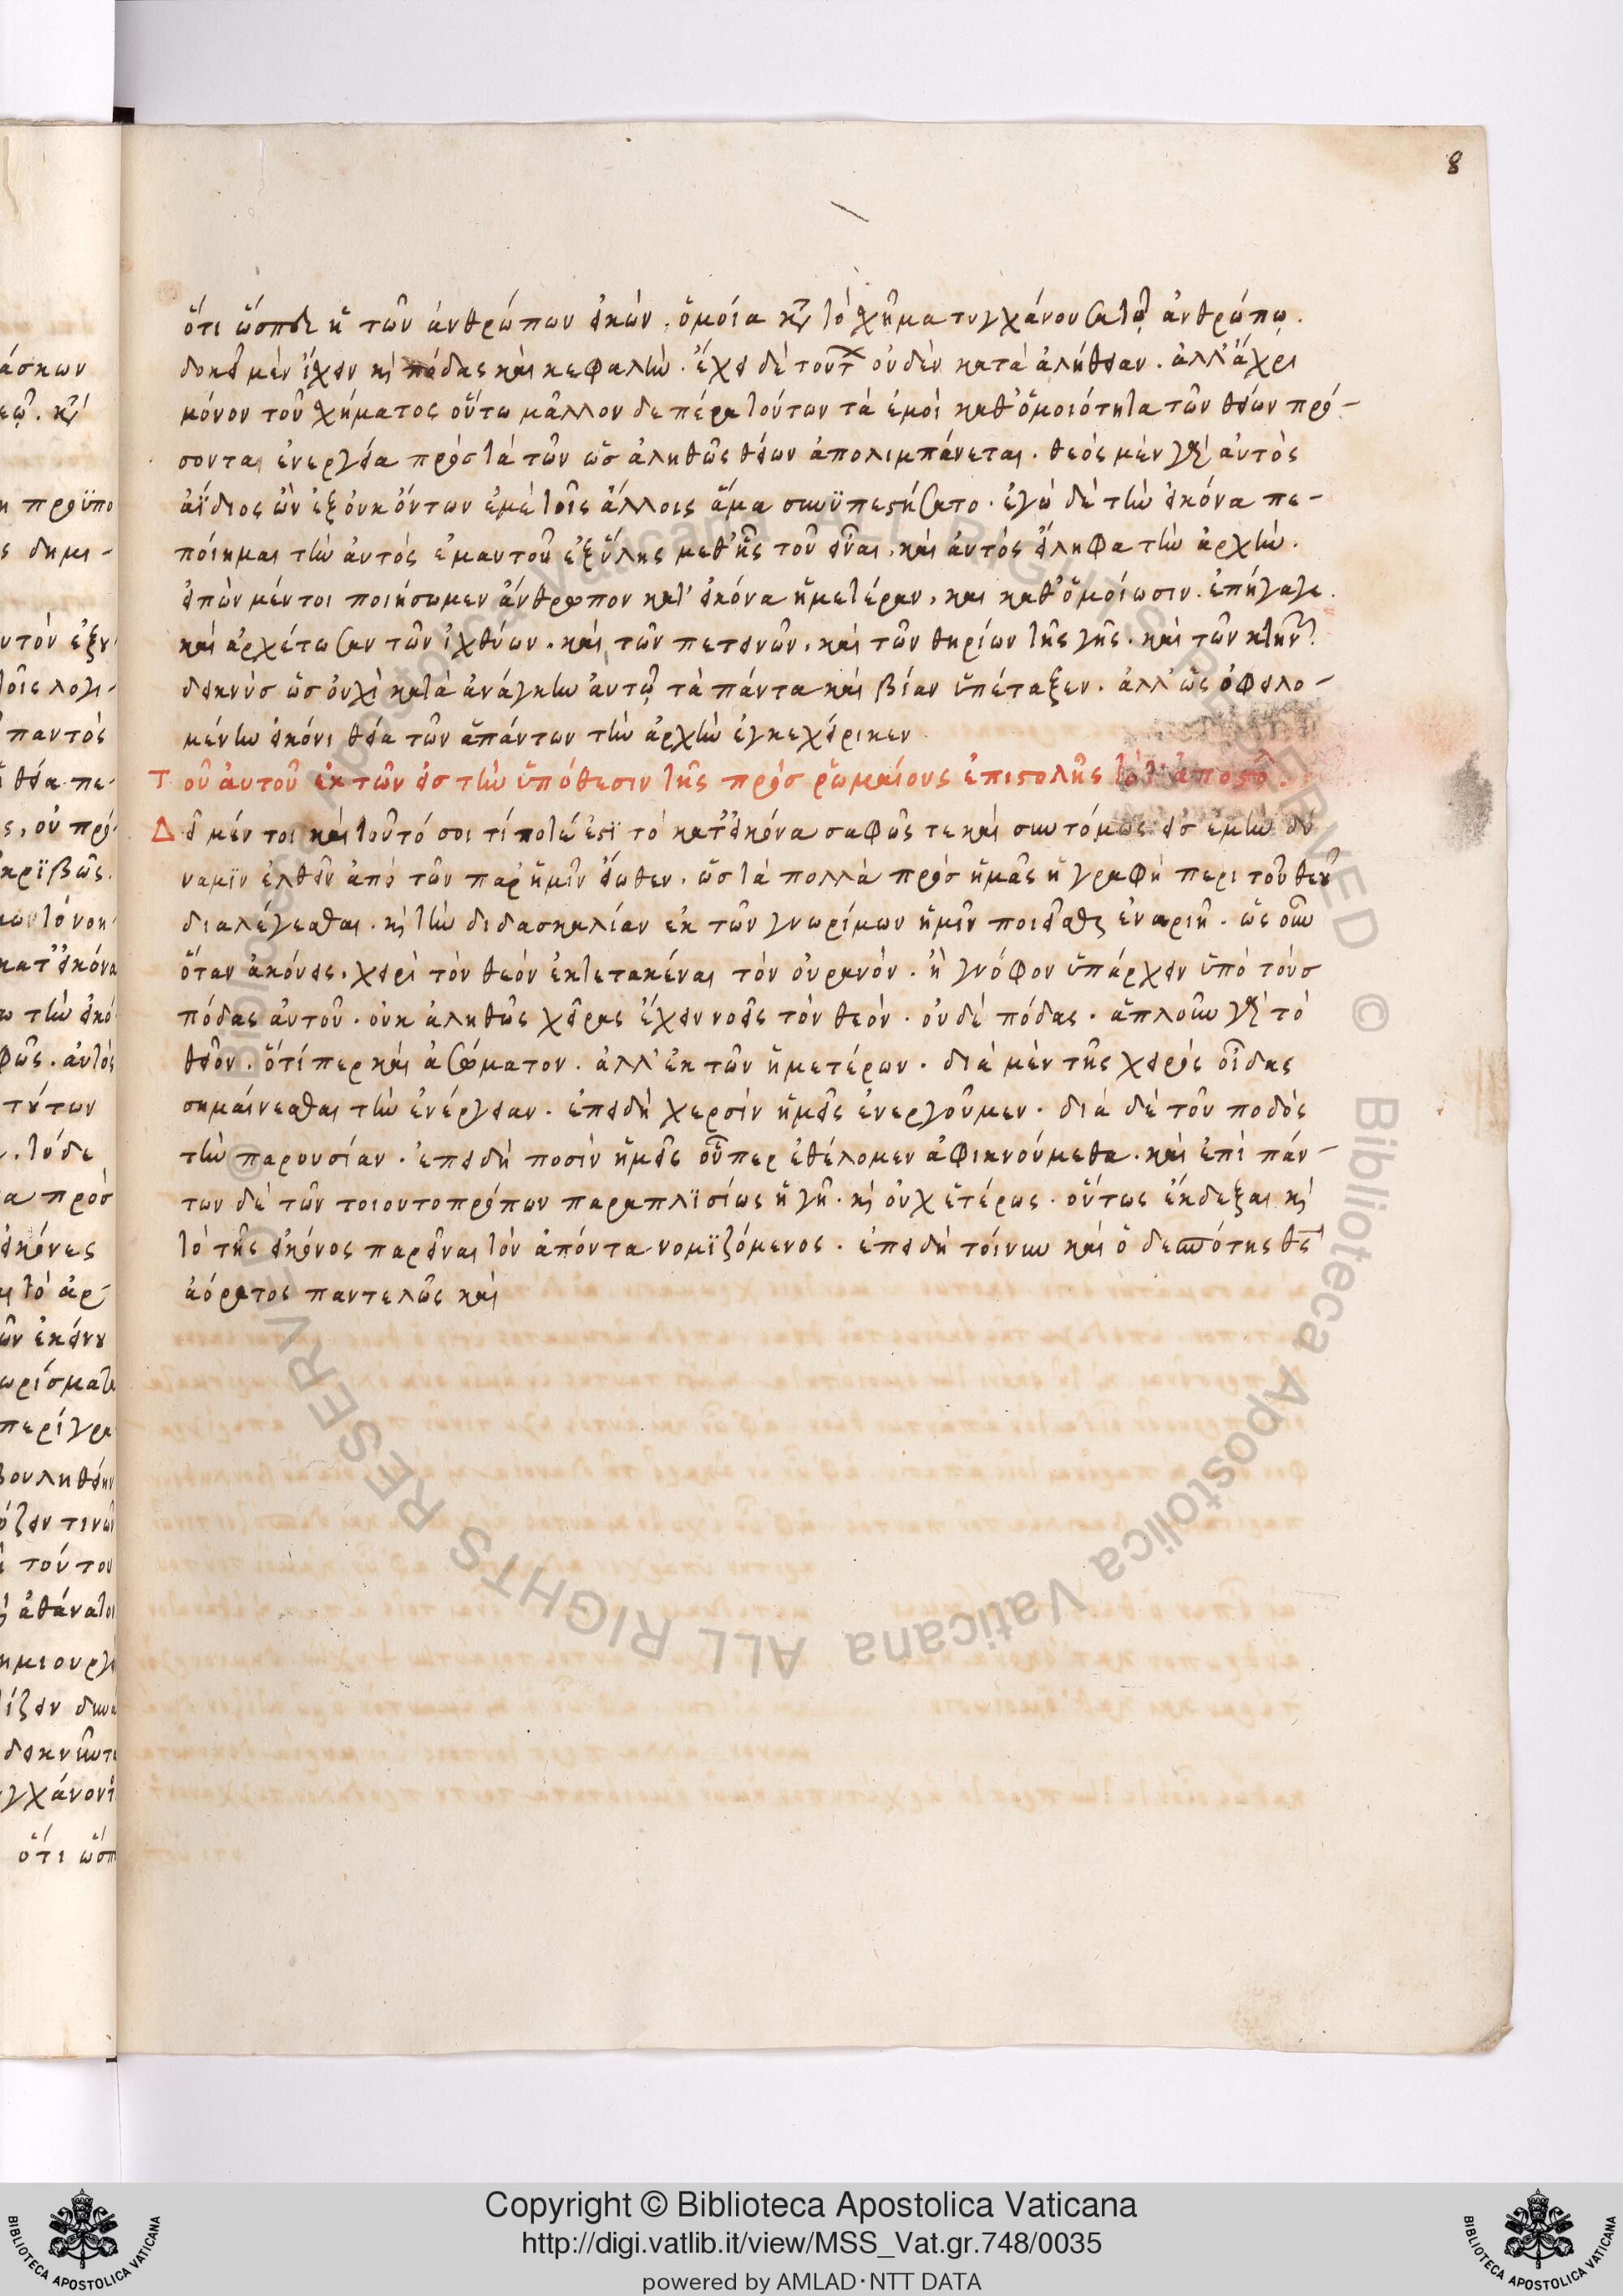 8
ὅτι ὥσπερ ἡ τῶν ἀνθρώπων εἰκών. ὁμοία κατὰ τὸ σχῆμα τυγχάνουσα τῷ ἀνθρώπῳ.
δοκεῖ μὲν ἴχειν καὶ πόδας καὶ κεφαλήν. ἔχει δὲ τούτων οὐδὲν κατὰ ἀλήθειαν. ἀλλ' ἄχρι
μόνον τοῦ σχήματος οὕτω μᾶλλον δε πέρα τούτων τὰ ἐμοὶ καθ' ὁμοιότητα τῶν θείων πρό-
σοντα ἐνεργεία πρὸς τὰ τῶν ὡς ἀληθῶς θείων ἀπολιμπάνεται. θεὸς μὲν γὰρ αὐτὸς
ἀΐδιος ὢν ἐξ οὐκ ὄντων ἐμὲ τοῖς ἄλλοις ἅμα συνϋπεστήσατο. ἐγὼ δὲ τὴν εἰκόνα πε-
ποίημαι τὴν αὐτὸς ἐμαυτοῦ ἐξ ὕλης μεθ' ἧς τοῦ εἶναι, καὶ αὐτὸς εἴληφα τὴν ἀρχήν.
εἰπὼν μέντοι ποιήσωμεν ἄνθρωπον κατ' εἰκόνα ἡμετέραν, και καθ' ὁμοίωσιν. ἐπήγαγε.
καὶ ἀρχέτωσαν τῶν ἰχθύων. καὶ τῶν πετεινῶν. καὶ τῶν θηρίων τῆς γῆς. καὶ τῶν κτηνῶν
δεικνὺς ὡς οὐχὶ κατὰ ἀνάγκην αὐτῷ τὰ πάντα καὶ βίαν ὑπέταξεν. ἀλλ' ὡς ὀφειλο-
μένην εἰκόνι θεία τῶν ἁπάντων τὴν ἀρχὴν ἐγκεχείρικεν
Τοῦ αὐτοῦ ἐκ τῶν εἰς τὴν ὑπόθεσιν τῆς πρὸς ῥωμαίους ἐπιστολῆς τοῦ ἀποστό.
Δεῖ μέν τοι καὶ τοῦτό σοι τί ποτέ ἐστϊ τὸ κατ' εἰκόνα σαφῶς τε καὶ συντόμως εἰς ἐμὴν δύ
ναμϊν ἐλθεῖν ἀπὸ τῶν παρ' ἡμῖν εἴωθεν. ὡς τὰ πολλὰ πρὸς ἡμᾶς ἡ γραφὴ περὶ τοῦ θεοῦ
διαλέγεσθαι. καὶ τὴν διδασκαλίαν ἐκ τῶν γνωρίμων ἡμῖν ποιεῖσθαι ἐναργῆ. ὡς οὖν
ὅταν ἀκούεις. χειρὶ τὸν θεὸν ἐκτετακέναι τὸν οὐρανόν. ἢ γνόφον ὑπάρχειν ὑπὸ τοὺς
πόδας αὐτοῦ. οὐκ ἀληθῶς χεῖρας ἔχειν νοεῖς τὸν θεόν. οὐδὲ πόδας. ἁπλοῦν γὰρ τὸ
θεῖον. ὅτί περ καὶ ἀσώματον. ἀλλ' ἐκ τῶν ἡμετέρων. διὰ μὲν τῆς χειρὸς οἶδας
σημαίνεσθαι τὴν ἐνέργειαν. ἐπειδὴ χερσὶν ἡμεῖς ἐνεργοῦμεν. διὰ δὲ τοῦ ποδὸς
τὴν παρουσίαν. ἐπειδὴ ποσὶν ἡμεῖς οὗπερ ἐθέλομεν ἀφικνούμεθα. καὶ ἐπὶ πάν-
των δὲ τῶν τοιουτοτρόπων παραπλϊσίως ἡγῆ. καὶ οὐχ ἑτέρως. οὕτως ἔκδεξαι καὶ
τὸ τῆς εἰκόνος παρεῖναι τὸν ἀπόντα νομϊζόμενος. ἐπειδὴ τοίνυν καὶ ὁ δεσπότης θς
ἀόρατος παντελῶς καὶ
Copyright © Biblioteca Apostolica Vaticana
http://digi.vatlib.it/view/MSS_Vat.gr.748/0035
powered by AMLAD·NTT DATA